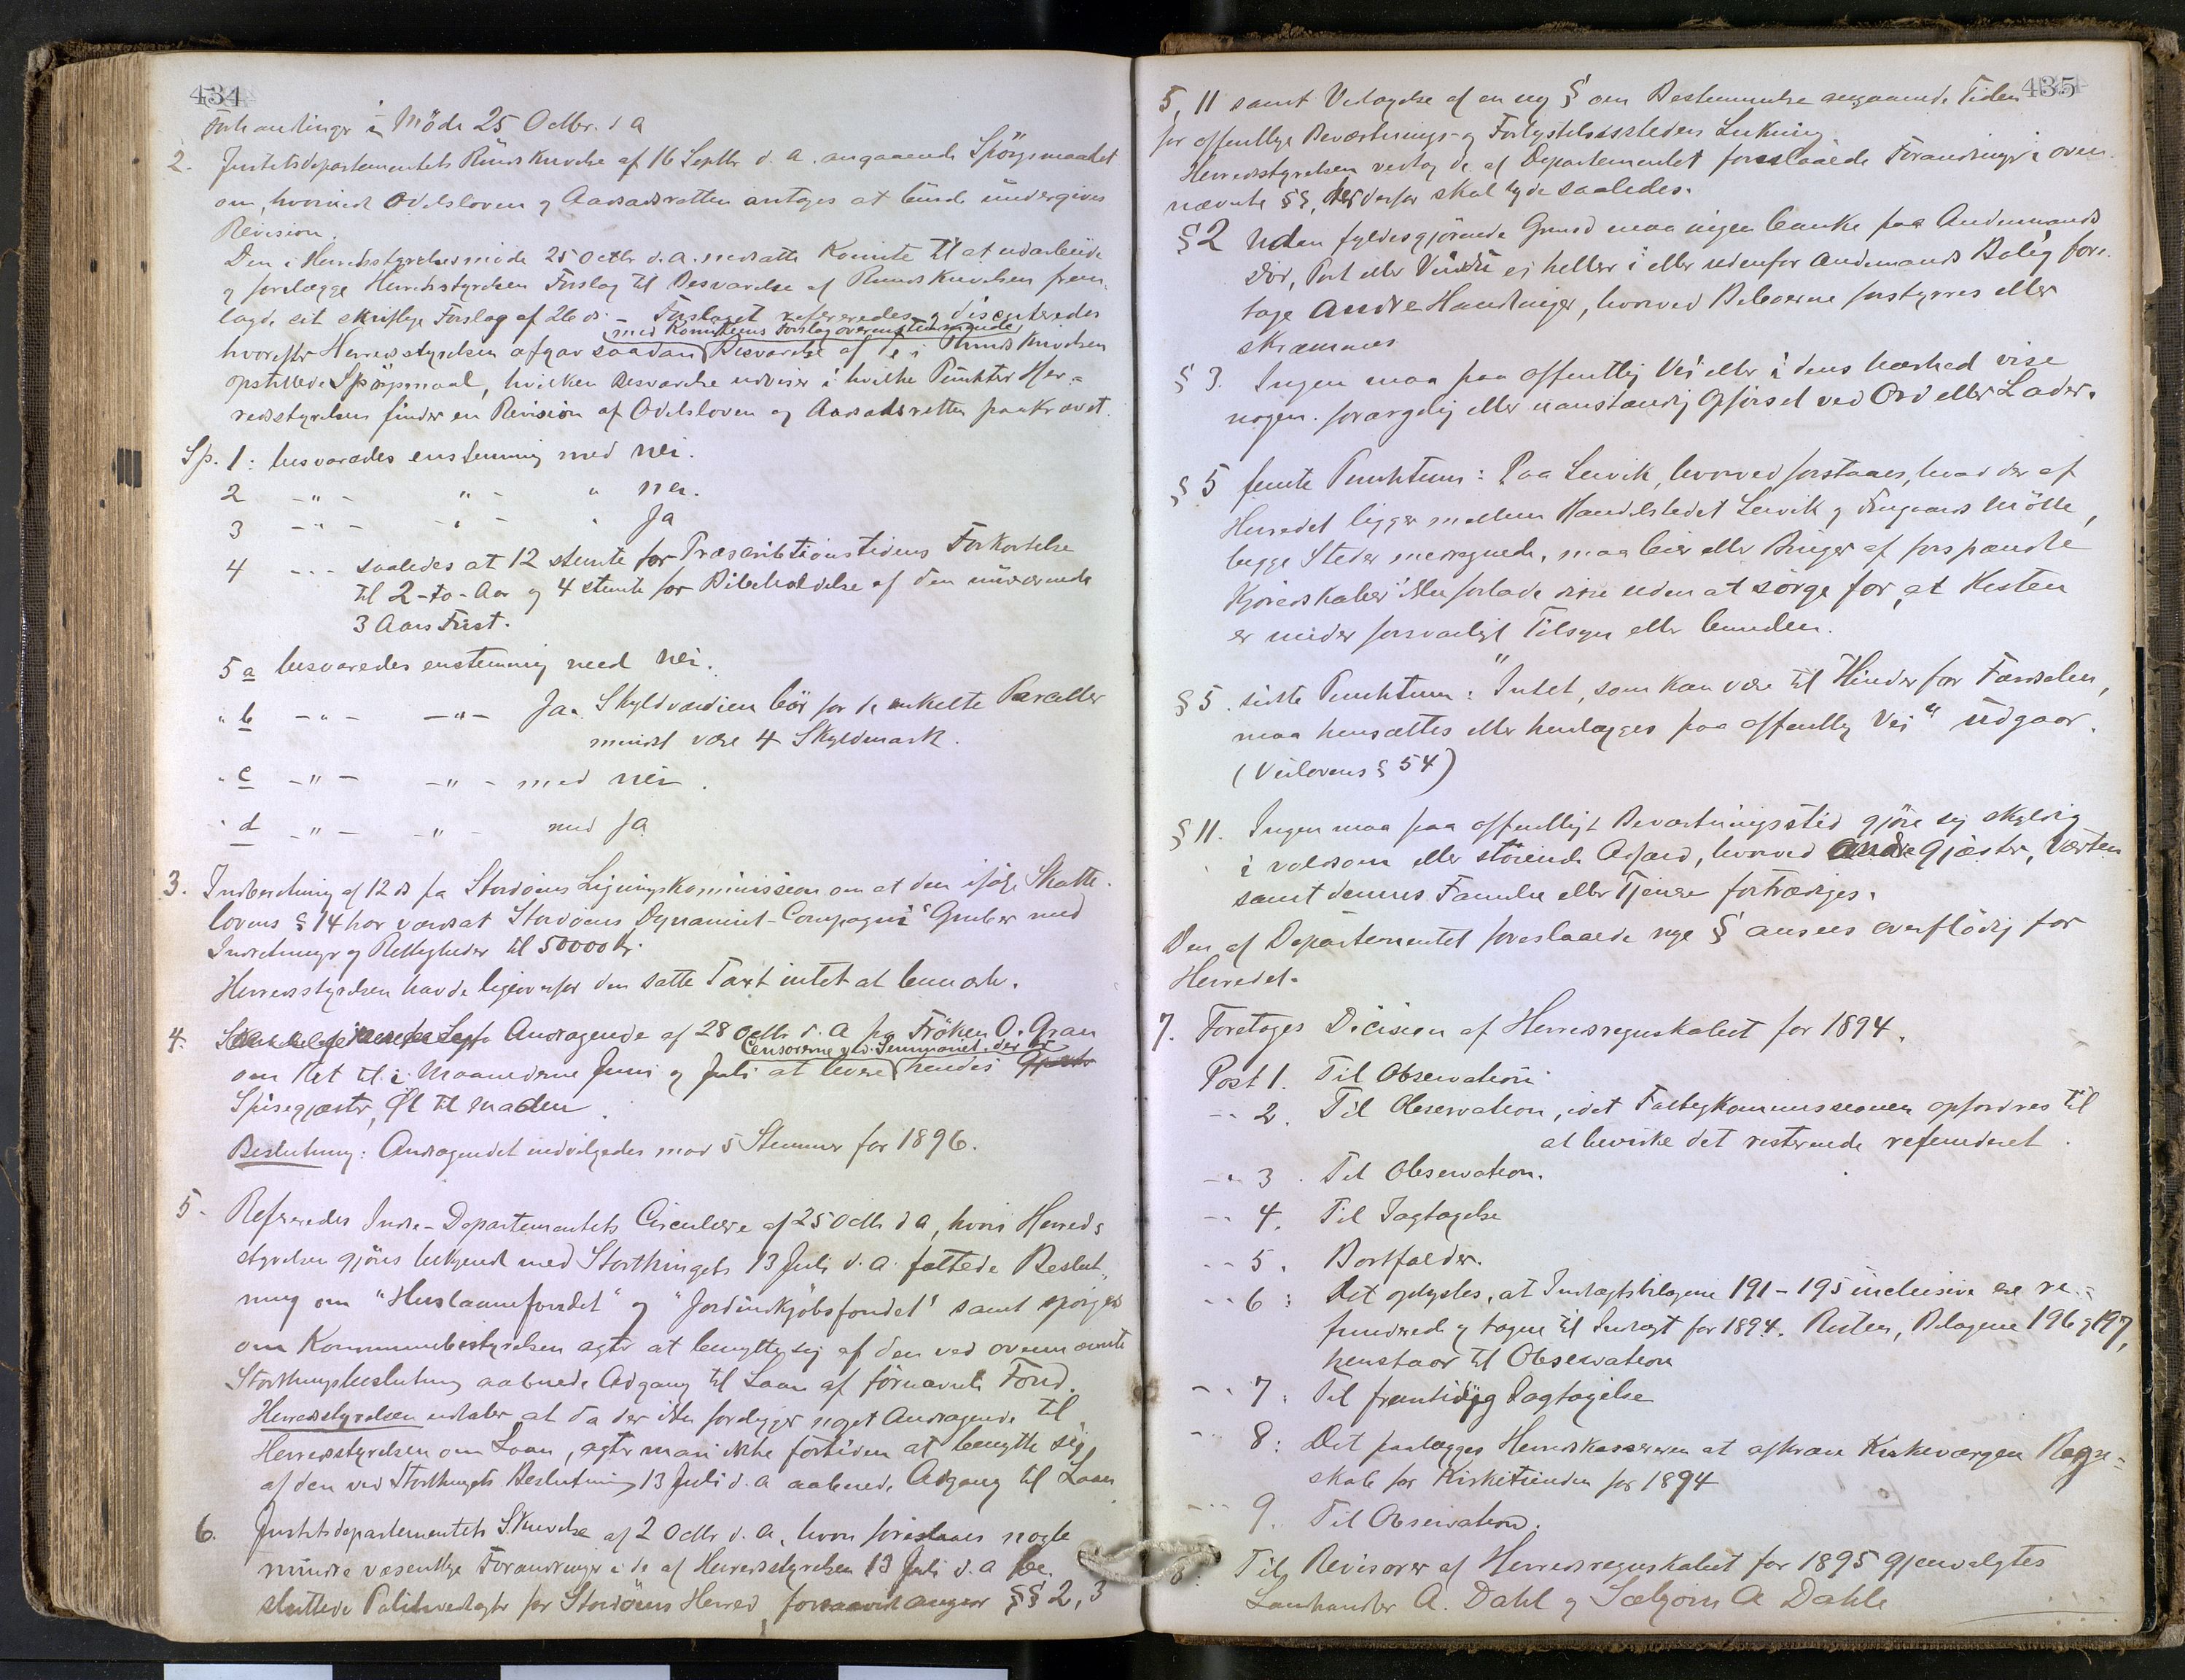 434
Forhandlinger i Möde 25 Octbr. d A
2. Justitsdepartementets Rundskrivelse af 16 Septbr d. A. angaaende Spörgsmaalet
om, hvorvidt Odelsloven og Aasædesretten antages at burde undergives
Revision.
Den i Herredsstyrelsesmöde 25 Octbr d. A. nedsatte Komite til at udarbeide
og forelægge Herredsstyrelsen Forslag til Besvarelse af Rundskrivelsen frem-
lagde sit skriftlige Forslag af 26 ds. Forslaget refereredes og discuteredes
med Komiteens Forslag overensstemmende
hvorefter Herredsstyrelsen afgav saadan Besvarelse af de i Rundskrivelsen
opstillede Spörgsmaal, hvilken Besvarelse udviser i hvilke Punkter Her-
redsstyrelsen finder en Revision af Odelsloven og Aasædesretten paakrævet.
Sp. 1: besvaredes enstemmig med nei.
2 -"- -"- " nei.
3 -"- -"- " Ja
4 -"- saaledes at 12 stemte for Præscribtionstidens Forkortelse
til 2-to-Aar og 4 stemte for Bibeholdelse af den nuværende
3 Aars Frist.
5 a besvaredes enstemmig med nei.
" b -"- -"- Ja. Skyldværdien bör for de enkelte Parceller
mindst være 4 Skyldmark.
" c -"- -"- med nei.
" d -"- -"- med Ja
3. Indberetning af 12 ds fra Stordöens Ligningskommission om at den ifölge Skatte-
lovens § 14 har værdsat Stordöens Dynamit-Compagni's Gruber med
Indretninger og Rettigheder til 50000 Kr.
Herredsstyrelsen havde ligeoverfor den satte Taxt intet at bemærke.
4. Andragende af 28 Octbr d. A fra Fröken O. Gran
Censorerne ved Seminariet, der er
om Ret til i Maanederne Juni og Juli at levere hendes Gjæster
Spisegjæster, Öl til Maden.
Beslutning: Andragendet indvilgedes mod 5 Stemmer for 1896.
5. Refereredes Indre-Departementets Circulære af 25 Octbr d A, hvori Herreds
styrelsen gjöres bekjendt med Storthingets 13 Juli d. A. fattede Beslut-
ning om "Huslaanefondet" og "Jordindkjöbsfondet" samt spörges
om Kommunebestyrelsen agter at benytte sig af den ved ovennævnte
Storthingsbeslutning aabnede Adgang til Laan af förnævnte Fond.
Herredsstyrelsen udtaler at da der ikke foreligger noget Andragende til
Herredsstyrelsen om Laan, agter man ikke fortiden at benytte sig
af den ved Storthingets Beslutning 13 Juli d. A aabnede Adgang til Laan
6. Justitsdepartementets Skrivelse af 2 Octbr d. A, hvori foreslaaes nogle
mindre væsentlige Forandringer i de af Herredsstyrelsen 13 Juli d. A be-
sluttede Politivedtægter for Stordöens Herred, forsaavidt angaar §§ 2, 3
435
5, 11 samt Vedtagelse af en ny § om Bestemmelse angaaende Tiden
for offentlige Beværtnings- og Forlystelsessteders Lukning.
Herredsstyrelsen vedtog de af Departementet foreslaaede Forandringer i oven-
nævnte §§, der derfor skal lyde saaledes.
§ 2 Uden fyldesgjörende Grund maa ingen banke paa Andenmands
Dör, Port eller Vindu ei heller i eller udenfor Andenmands Bolig fore-
tage andre Handlinger, hvorved Beboerne forstyrres eller
skræmmes
§ 3. Ingen maa paa offentlig Vei eller i dens Nærhed vise
nogen forargelig eller uanstændig Opförsel ved Ord eller Lader.
§ 5 femte Punktum: Paa Leivik, hvorved forstaaes, hvad der af
Herredet ligger mellem Handelsstedet Leivik og Prægaards Mölle,
begge Steder medregnede, maa Eier eller Bruger af forspændte
Kjöredskaber ikke forlade disse uden at sörge for, at Hesten
er under forsvarligt Tilsyn eller bunden.
§ 5. sidste Punktum: "Intet, som kan være til Hinder for Færdselen,
maa hensættes eller henlægges paa offentlig Vei" udgaar.
(Veilovens § 54)
§ 11. Ingen maa paa offentligt Beværtningssted gjöre sig skyldig
i voldsom eller störende Adfærd, hvorved andre Gjæster, Værten
samt dennes Familie eller Tjenere fortrædiges.
Den af Departementet foreslaaede nye § ansees overflödig for
Herredet.
7. Foretoges Dicision af Herredsregnskabet for 1894.
Post 1. Til Observation
-"- 2. Til Observation, idet Fattigkommissionen opfordres til
at bevirke det resterende refunderet.
-"- 3. Til Observation.
-"- 4. Til Iagtagelse
-"- 5. Bortfalder.
-"- 6: Det oplystes, at Indtægtsbilagene 191-195 inclusive ere re-
funderede og tagne til Indtægt for 1894. Resten, Bilagene 196 og 197,
henstaar til Observation
-"- 7: Til fremtidig Iagtagelse
-"- 8: Det paalægges Herredskassereren at afkræve Kirkeværgen Regn-
skab for Kirketienden for 1894
-"- 9. Til Observation.
8: Til Revisorer af Herredsregnskabet for 1895 gjenvalgtes
Landhandler A. Dahl og A Dahle